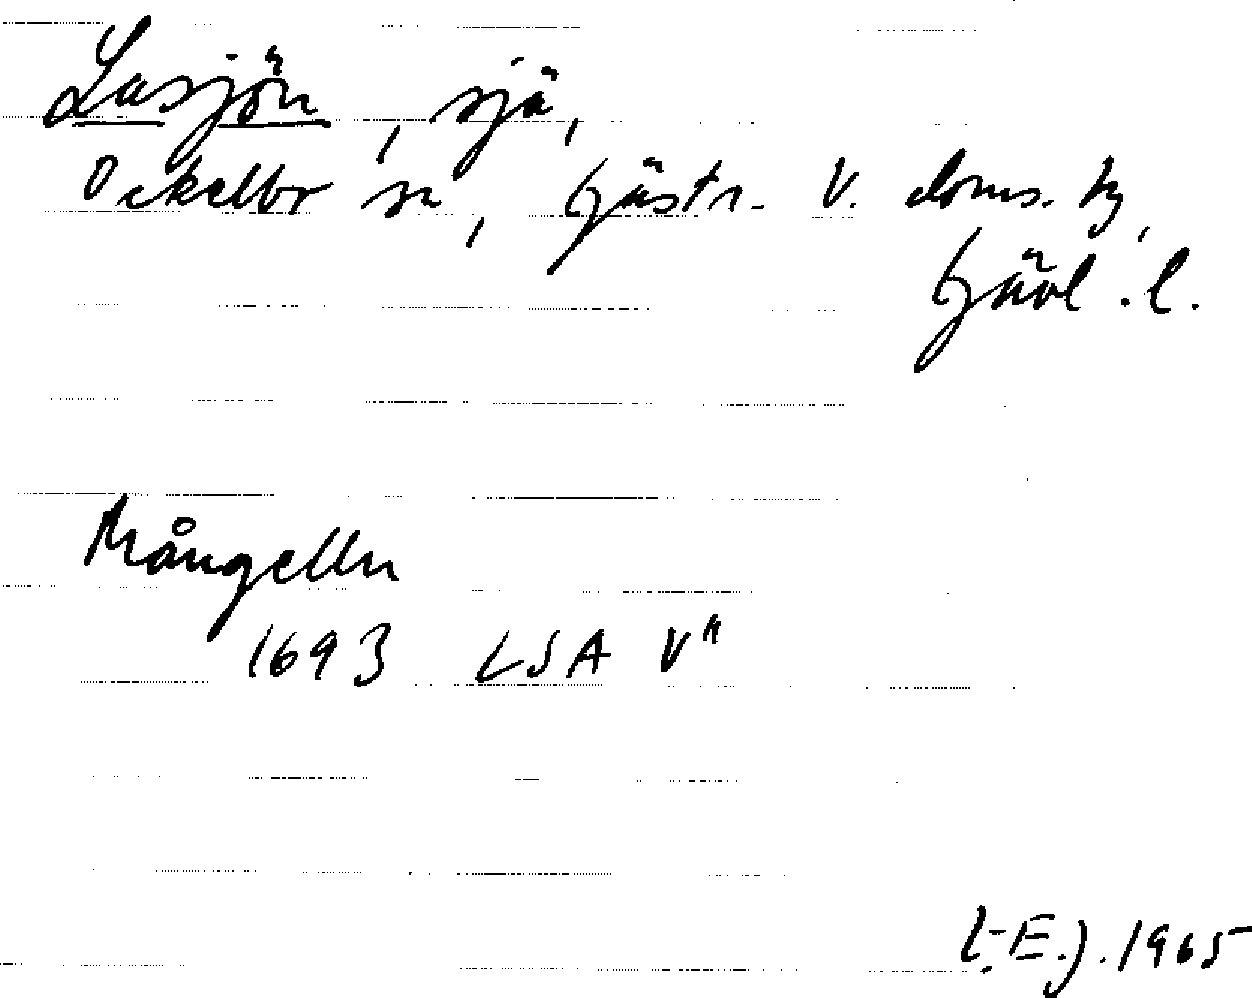 Lasjön, sjö,
Ockelbo sn, Gästr. V. doms. tg,
Gävl. l.
Mångelln
1693 LSA V"
L-E.J. 1965